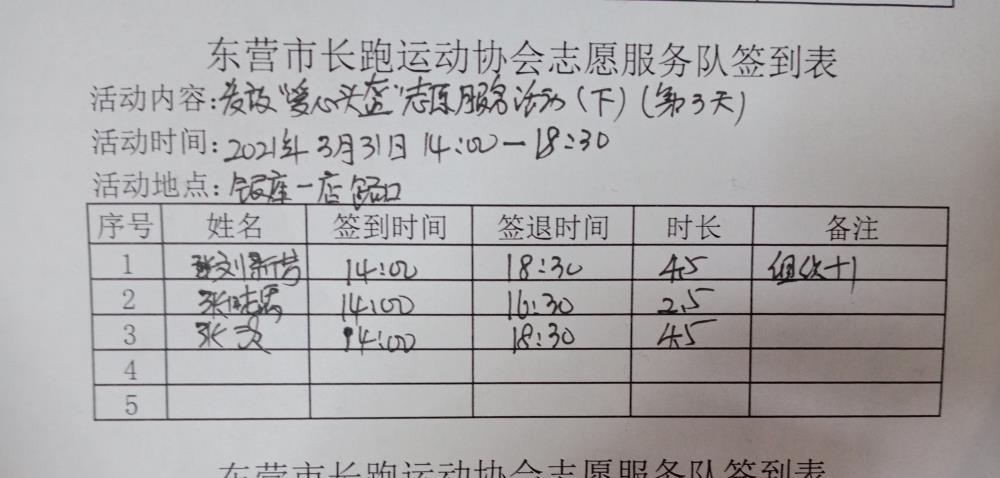 东营市长跑运动协会志愿服务队签到表
活动内容:发放“爱心头盔”志愿服务活动(下)(第3天)
活动时间:2021年3月31日 14:00—18:30
活动地点:银座一店路口
序号 姓名 签到时间 签退时间 时长 备注
1 刘新芳 14:00 18:30 4.5 组织+1
2 张 14:00 16:30 2.5
3 张 14:00 18:30 4.5
4
5
东营市长跑运动协会志愿服务队签到表